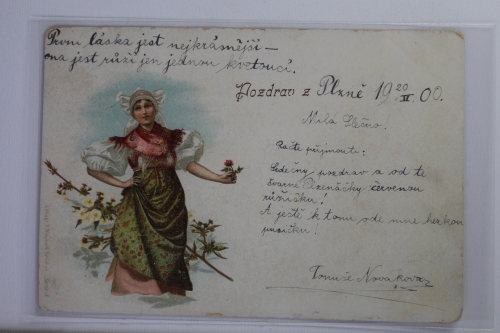 První láska jest nejkrásnější –
ona jest růží jen jednou kvetoucí.
Pozdrav z Plzně 19 20/II. 00.
Milá Slečno.
Račte přijmouti:
Srdečný pozdrav a od té
švarné Plzeňačky červenou
růžičku!
A ještě k tomu ode mne hezkou